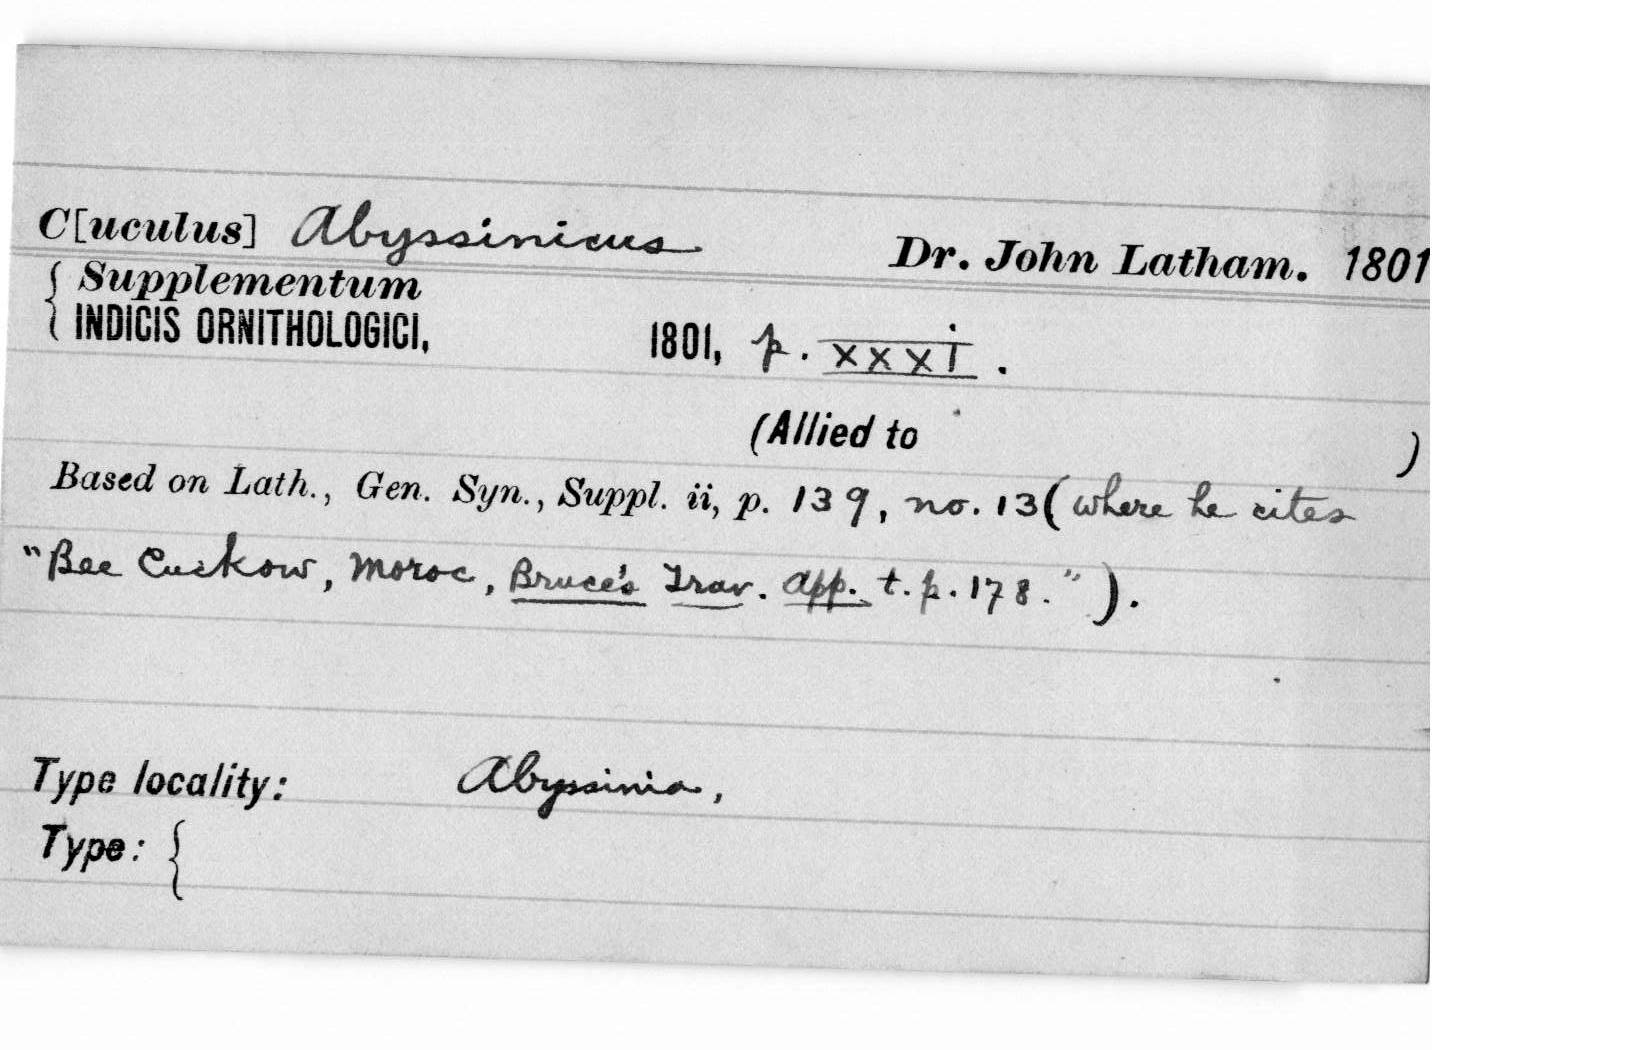 C[uculus] Abyssinicus Dr. John Latham. 1801
{ Supplementum
INDICIS ORNITHOLOGICI, 1801, p. xxxi.
(Allied to )
Based on Lath., Gen. Syn., Suppl. ii, p. 139, no. 13 (where he cites
"Bee Cuckow, Moroc, Bruce's Trav. App. t. p. 178.").
Type locality: Abyssinia,
Type: {